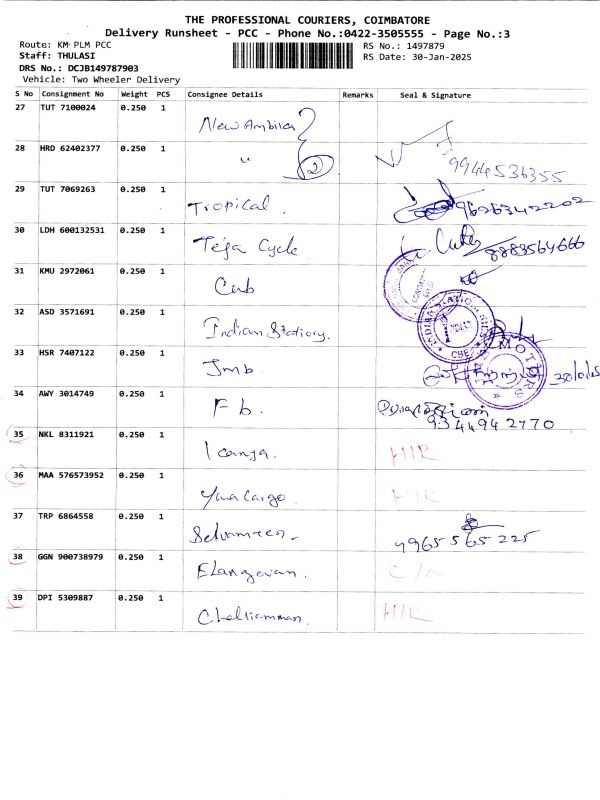 THE PROFESSIONAL COURIERS, COIMBATORE
Delivery Runsheet - PCC - Phone No.:0422-3505555 - Page No.:3
Route: KM PLM PCC
RS No.: 1497879
Staff: THULASI
RS Date: 30-Jan-2025
DRS No.: DCJB149787903
Vehicle: Two Wheeler Delivery
S No Consignment No Weight PCS Consignee Details Remarks Seal & Signature
27 TUT 7100024 0.250 1 New Ambika
28 HRD 62402377 0.250 1 " 2 9944536355
29 TUT 7069263 0.250 1 Tropical. 9626342202
30 LDH 600132531 0.250 1 Teja Cycle 8883564666
31 KMU 2972061 0.250 1 Cub
32 ASD 3571691 0.250 1 Indian
33 HSR 7407122 0.250 1 Jmb. 30/1/25
34 AWY 3014749 0.250 1 Fb. 9344942770
35 NKL 8311921 0.250 1 HIR
36 MAA 576573952 0.250 1 Cargo. HIR
37 TRP 6864558 0.250 1 9965565225
38 GGN 900738979 0.250 1 Elangovan.
39 DPI 5309887 0.250 1 Chelliamman. HIR